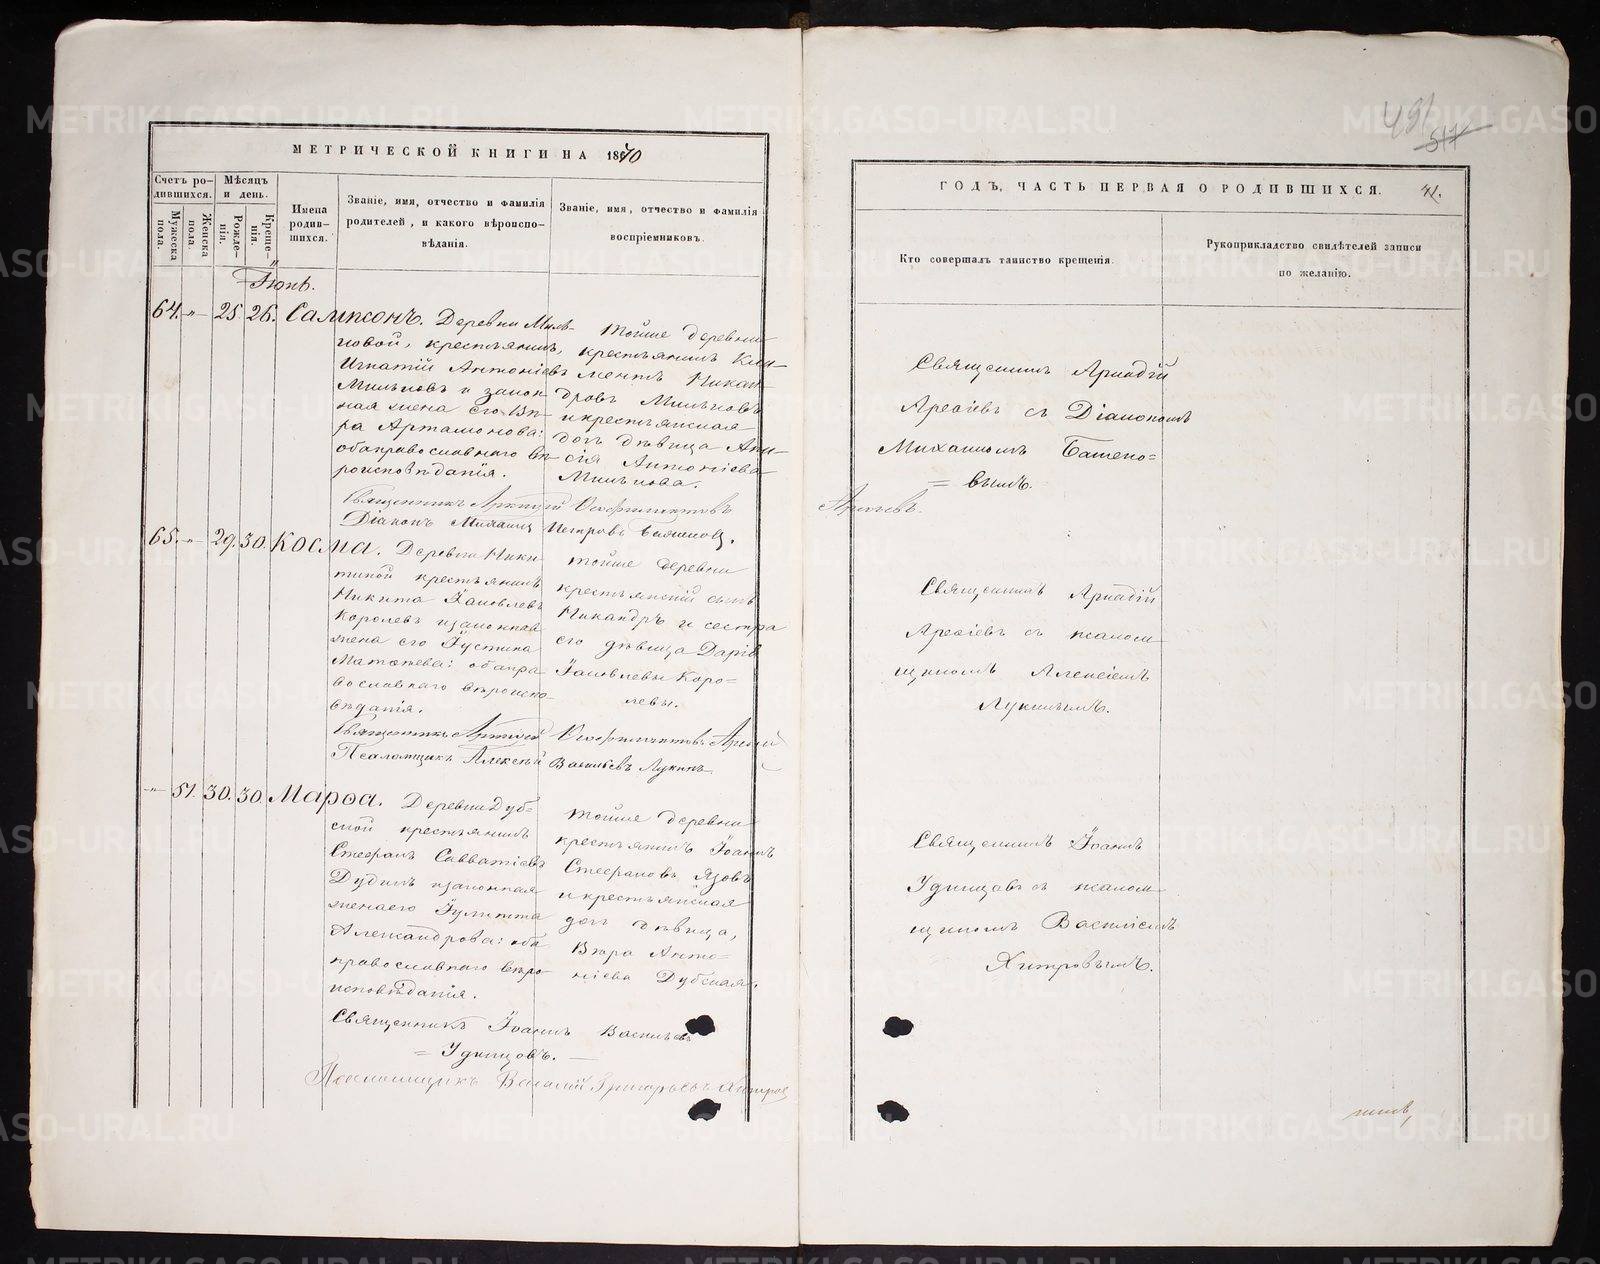 МЕТРИЧЕСКОЙ КНИГИ НА 1870
Счетъ ро-
дившихся.
Мѣсяцъ
и день.
Мужеска
пола.
Женска
пола.
Рожде-
нія.
Креще-
нія.
Имена
родив-
шихся.
Званіе, имя, отчество и фамилія
родителей, и какого вѣроиспо-
вѣданія.
Званіе, имя, отчество и фамилія
воспріемниковъ.
Іюнь.
64. „ 25. 26. Сампсонъ.
Деревни Миль-
ковой, крестьянинъ,
Игнатій Антоніевъ
Мильковъ и закон-
ная жена его Вѣ-
ра Артамонова:
оба православнаго вѣ-
роисповѣданія.
тойже деревни
крестьянинъ Кли-
ментъ Никан-
дровъ Мильковъ
и крестьянская
дочь дѣвица Ани-
сія Антоніева
Милькова.
Священникъ Аркадій Феофилактовъ Арефьевъ.
Діаконъ Михаилъ Петровъ
65. „ 29. 30. Косма.
Деревни Ники-
тиной крестьянинъ
Никита Іаковлевъ
Королевъ и законная
жена его Іустина
Матѳеева: оба пра-
вославнаго вѣроиспо-
вѣданія.
тойже деревни
крестьянскій сынъ
Никандръ и сестра
его дѣвица Дарія
Іаковлевы Коро=
левы.
Священникъ Аркадій Феофилактовъ
Псаломщикъ Алексѣй Васильевъ Лукинъ
„ 51. 30. 30. Марѳа.
Деревни Дуб=
ской крестьянинъ
Стефанъ Савватіевъ
Дудинъ и законная
жена его Іулитта
Александрова: оба
православнаго вѣро-
исповѣданія.
тойже деревни
крестьянинъ Іоаннъ
Стефановъ Язовъ
и крестьянская
дочь дѣвица,
Вѣра Анто=
ніева Дубская.
Священникъ Іоаннъ Васильевъ
= Удинцовъ. —
Псаломщикъ Василій Григорьевъ Хитровъ
491
517
ГОДЪ, ЧАСТЬ ПЕРВАЯ О РОДИВШИХСЯ. 41.
Кто совершалъ таинство крещенія.
Рукоприкладство свидѣтелей записи
по желанію.
Священникъ Аркадій
Арефіевъ съ Діакономъ
Михаиломъ
= вымъ.
Священникъ Аркадій
Арефіевъ съ псалом-
щикомъ Алексіемъ
Лукинымъ.
Священникъ Іоаннъ
Удинцовъ съ псалом-
щикомъ Василіемъ
Хитровымъ.
METRIKI.GASO-URAL.RU